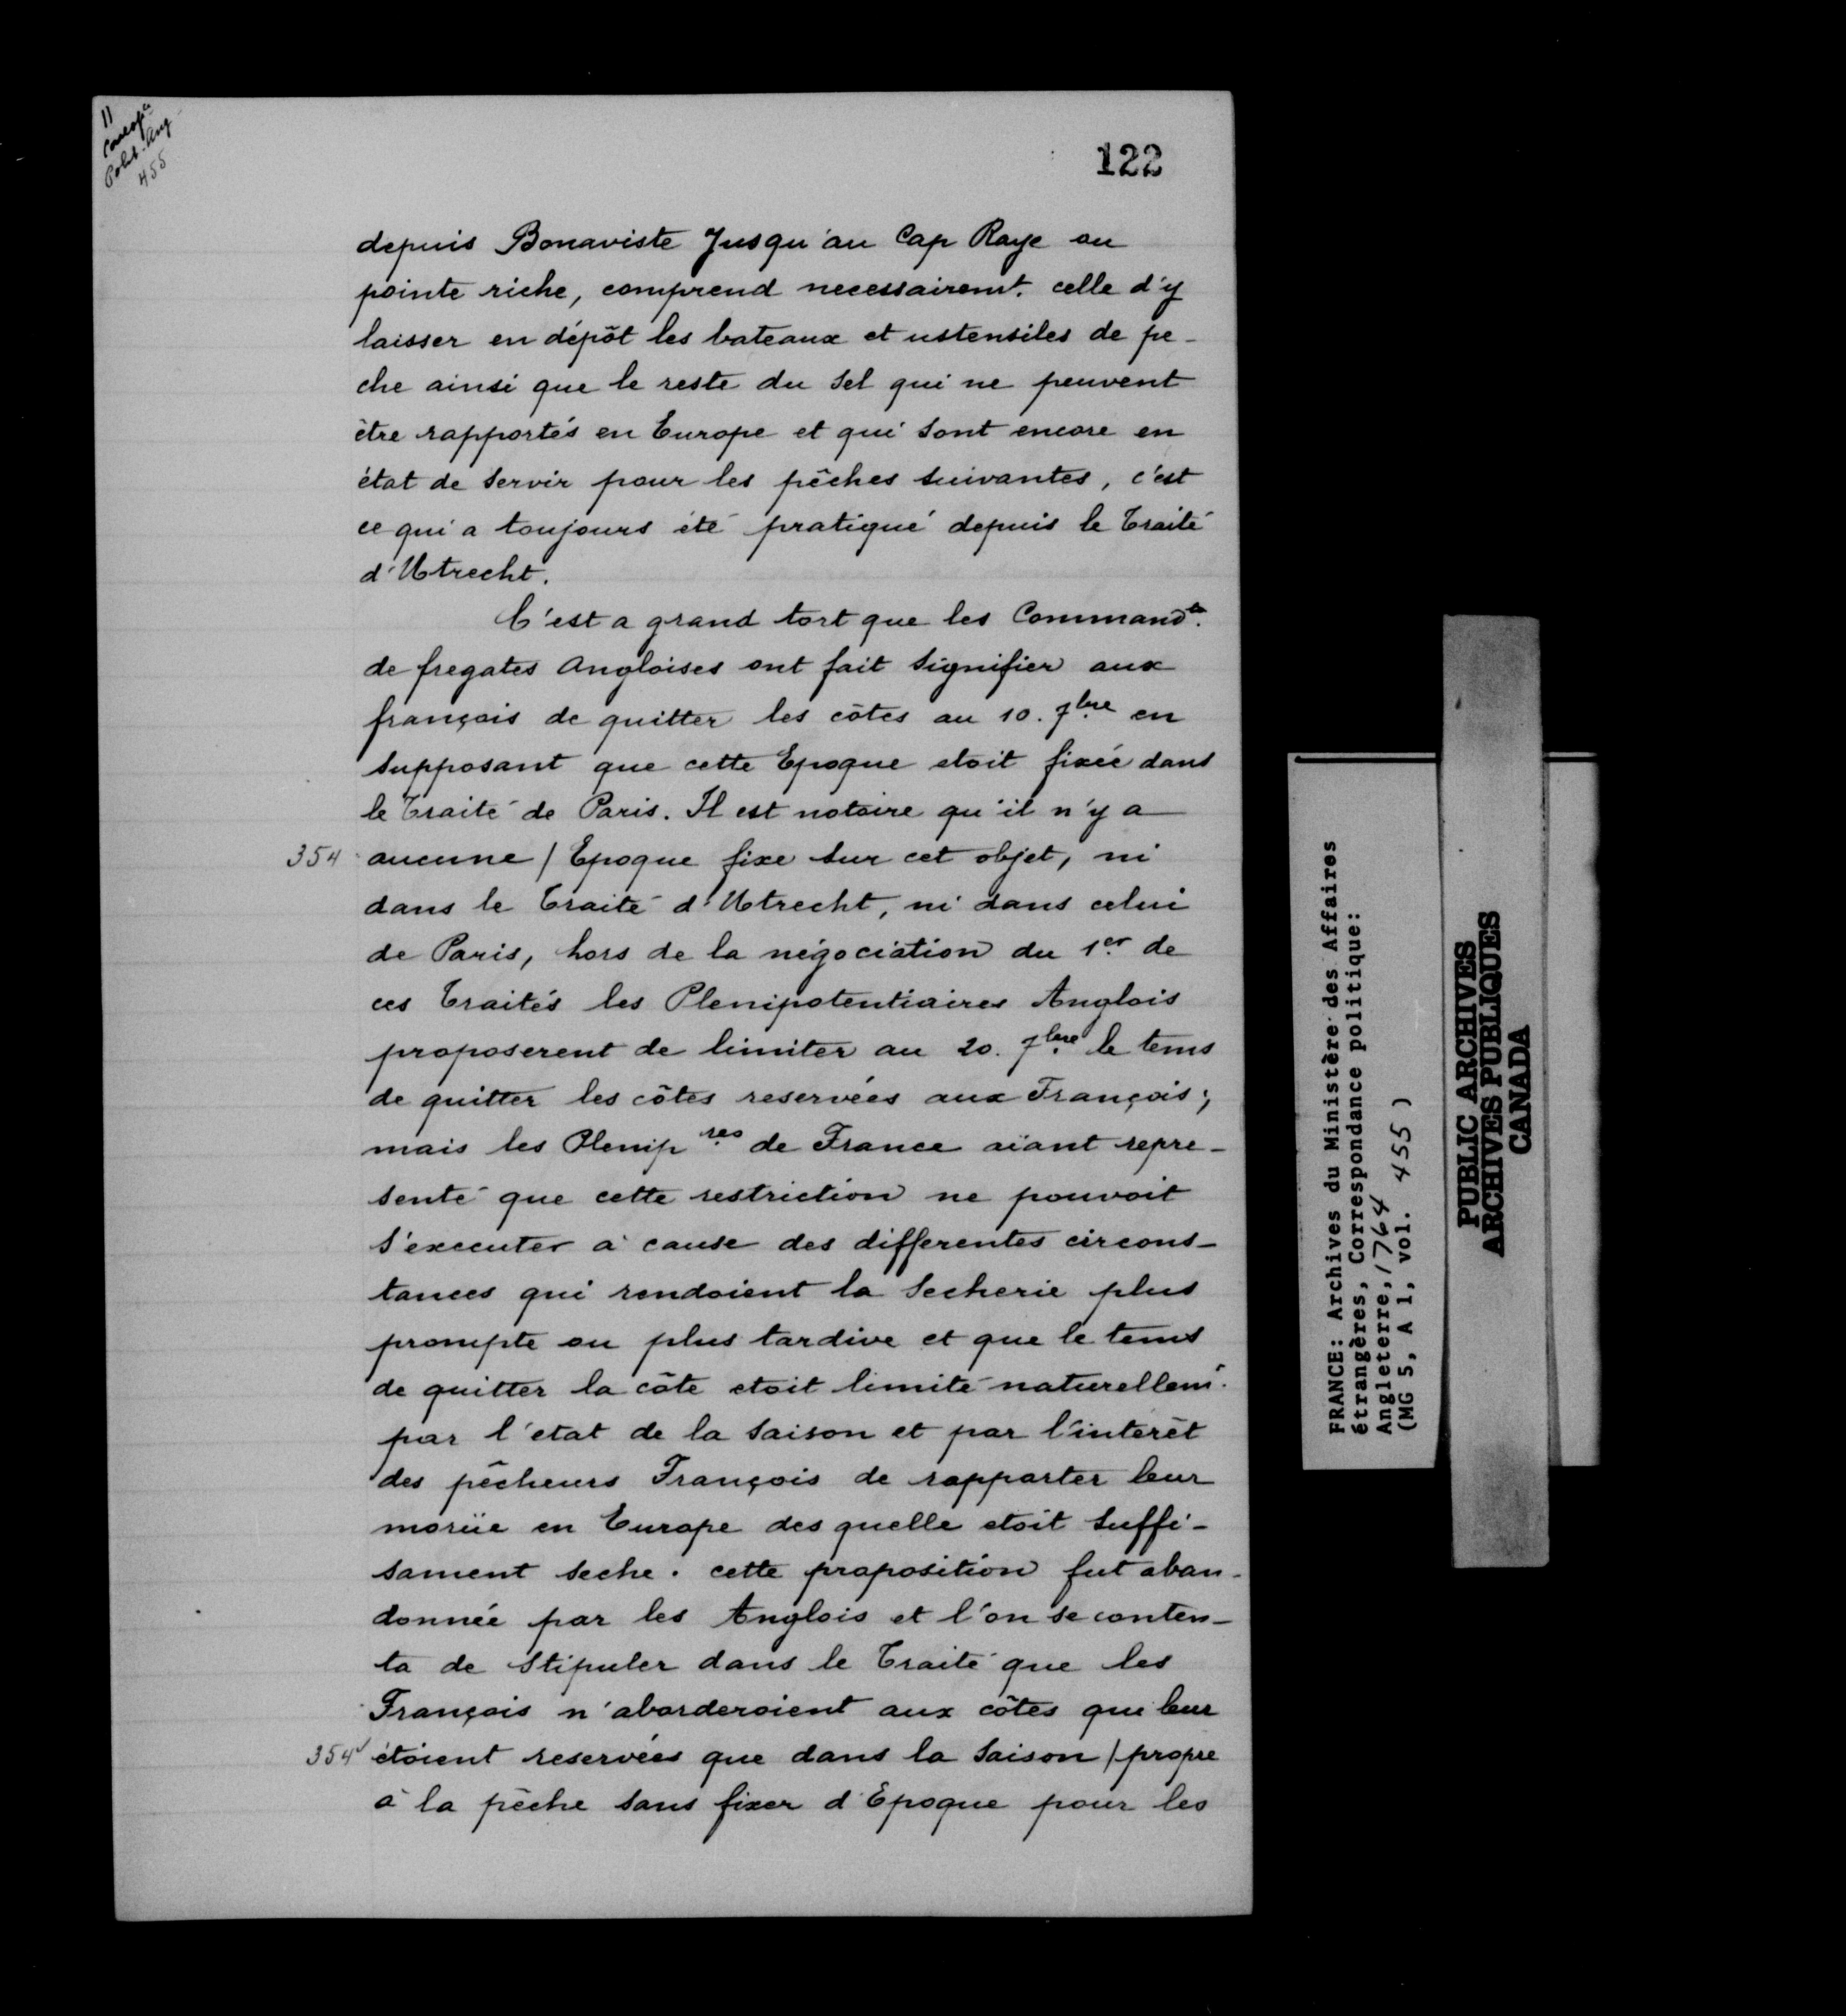 11
Corresp.ce
Polit. Ang.
455
122
depuis Bonaviste Jusqu'au Cap Raye ou
pointe riche, comprend necessairemt. celle d'y
laisser en dépôt les bateaux et ustensiles de pe-
che ainsi que le reste du Sel qui ne peuvent
être rapportés en Europe et qui sont encore en
état de servir pour les pêches suivantes, c'est
ce qui a toujours été pratiqué depuis le Traité
d'Utrecht.
C'est a grand tort que les Command.ts
de fregates Angloises ont fait signifier aux
françois de quitter les côtes au 10. 7bre en
supposant que cette Epoque etoit fixée dans
le Traité de Paris. Il est notoire qu'il n'y a
354 aucune / Epoque fixe sur cet objet, ni
dans le Traité d'Utrecht, ni dans celui
de Paris, hors de la négociation du 1er de
ces Traités les Plenipotentiaires Anglois
proposerent de limiter au 20. 7bre le tems
de quitter les côtes reservées aux François;
mais les Plenip.res de France aïant repre-
senté que cette restriction ne pouvoit
s'executer à cause des differentes circons-
tances qui rendoient la secherie plus
prompte ou plus tardive et que le tems
de quitter la côte etoit limité naturellemt.
par l'etat de la saison et par l'interêt
des pêcheurs François de rapporter leur
morüe en Europe des quelle etoit suffi-
sament seche. cette proposition fut aban-
donnée par les Anglois et l'on se conten-
ta de stipuler dans le Traité que les
François n'aborderoient aux côtes qui leur
354v étoient reservées que dans la saison / propre
à la pêche sans fixer d'Epoque pour les
FRANCE: Archives du Ministère des Affaires
étrangères, Correspondance politique:
Angleterre, 1764
(MG 5, A 1, vol. 455)
PUBLIC ARCHIVES
ARCHIVES PUBLIQUES
CANADA